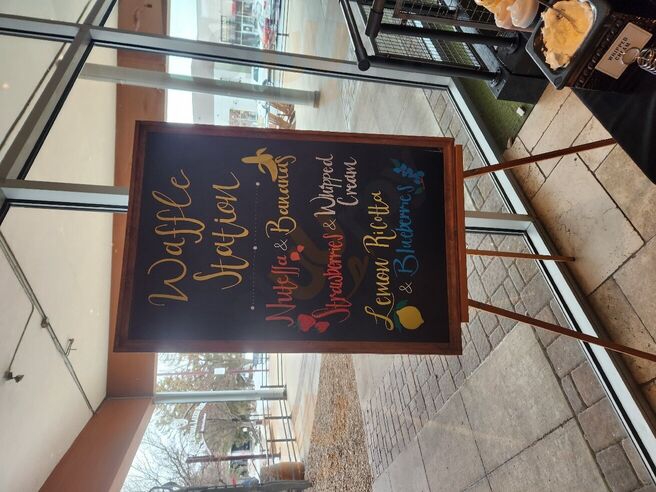 Waffle
Station
Nutella & Bananas
Strawberries & Whipped
Cream
Lemon Ricotta
& Blueberries
WHIPPED
CREAM